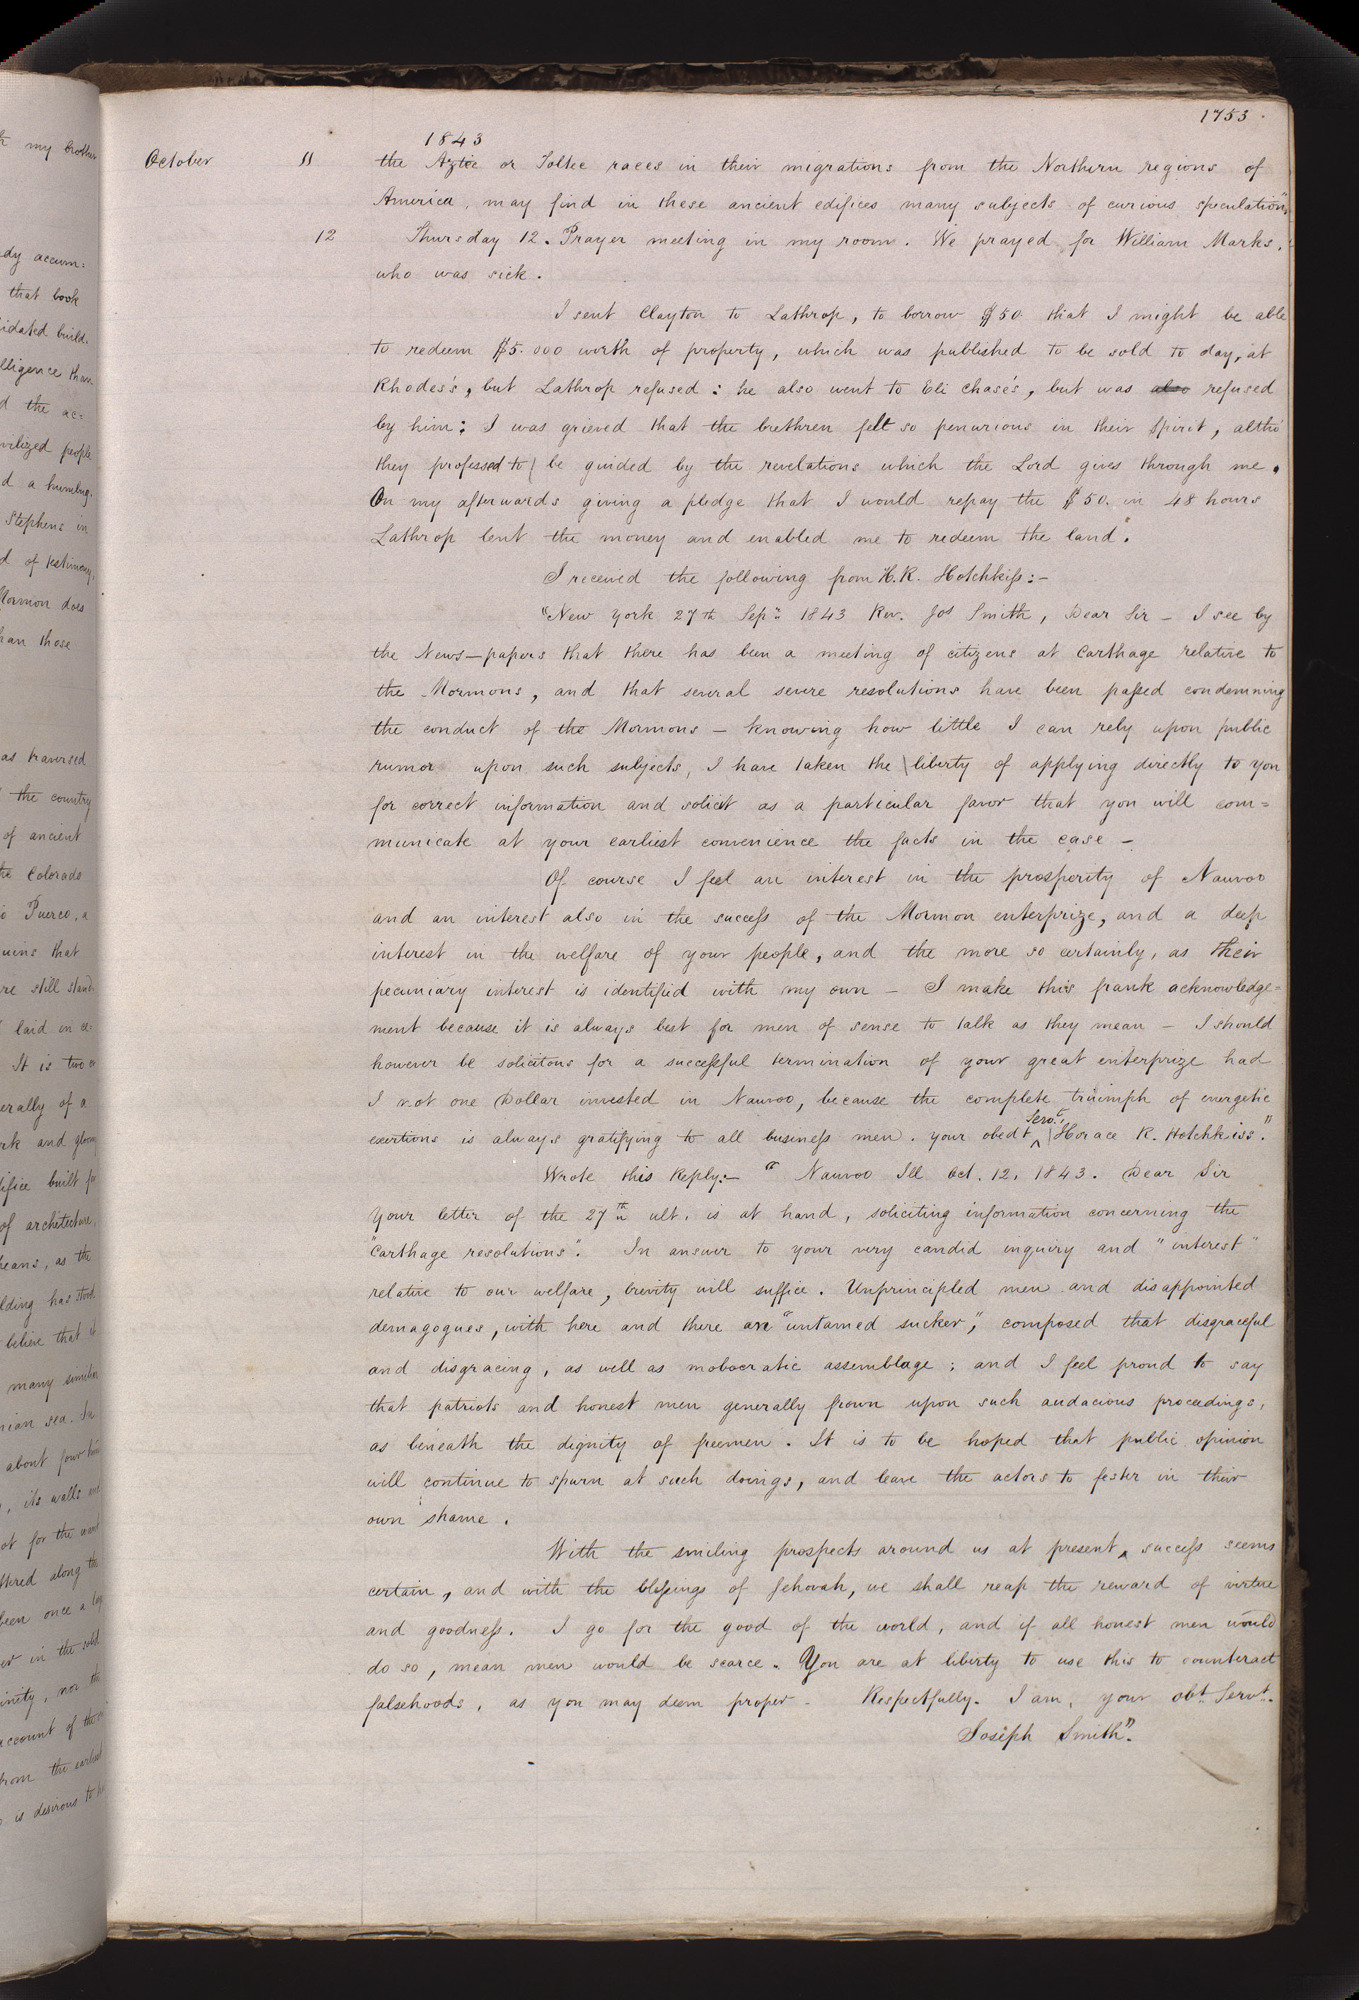 1753.
1843
October 11 the Aztec or Toltec races in their migrations from the Northern regions of
America, may find in these ancient edifices many subjects of curious speculation"
12 Thursday 12. Prayer meeting in my room. We prayed for William Marks,
who was sick.
I sent Clayton to Lathrop, to borrow $50 that I might be able
to redeem $5.000 worth of property, which was published to be sold to day, at
Rhodes's, but Lathrop refused: he also went to Eli Chase's, but was also refused
by him: I was grieved that the brethren felt so penurious in their spirit, altho'
they professed to be guided by the revelations which the Lord gives through me.
On my afterwards giving a pledge that I would repay the $50. in 48 hours
Lathrop lent the money and enabled me to redeem the land.
I received the following from H. R. Hotchkiss:—
"New York 27th Sepr. 1843 Rev. Jos Smith, Dear Sir — I see by
the News-papers that there has been a meeting of citizens at Carthage relative to
the Mormons, and that several severe resolutions have been passed condemning
the conduct of the Mormons — knowing how little I can rely upon public
rumor upon such subjects, I have taken the liberty of applying directly to you
for correct information and solicit as a particular favor that you will com=
municate at your earliest convenience the facts in the case —
Of course I feel an interest in the prosperity of Nauvoo
and an interest also in the success of the Mormon enterprize, and a deep
interest in the welfare of your people, and the more so certainly, as their
pecuniary interest is identified with my own — I make this frank acknowledge=
ment because it is always best for men of sense to talk as they mean — I should
however be solicitous for a successful termination of your great enterprize had
I not one Dollar invested in Nauvoo, because the complete triumph of energetic
exertions is always gratifying to all business men. your obedt Servt, Horace R. Hotchkiss."
Wrote this Reply:— "Nauvoo Ill Oct. 12, 1843. Dear Sir
Your letter of the 27th ult. is at hand, soliciting information concerning the
"Carthage resolutions". In answer to your very candid inquiry and "interest"
relative to our welfare, brevity will suffice. Unprincipled men and disappointed
demagogues, with here and there an "untamed sucker," composed that disgraceful
and disgracing, as well as mobocratic assemblage; and I feel proud to say
that patriots and honest men generally frown upon such audacious proceedings,
as beneath the dignity of freemen. It is to be hoped that public opinion
will continue to spurn at such doings, and leave the actors to fester in their
own shame.
With the smiling prospects around us at present, success seems
certain, and with the blessings of Jehovah, we shall reap the reward of virtue
and goodness. I go for the good of the world, and if all honest men would
do so, mean men would be scarce. You are at liberty to use this to counteract
falsehoods, as you may deem proper. Respectfully. I am, your obt. Servt.
Joseph Smith".